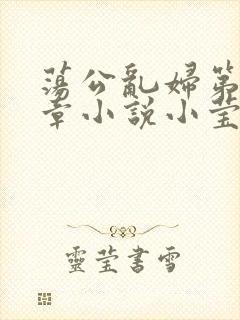 蕩公亂婦第
章小說小瑩
靈瑩書雪